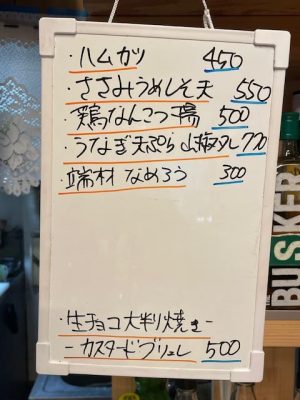 ・ハムカツ 450
・ささみうめしそ天 550
・鶏なんこつ揚 500
・うなぎ天ぷら 山椒タレ 770
・端材 なめろう 300
・生チョコ大判焼き-
-カスタードブリュレ 500
BUSKER